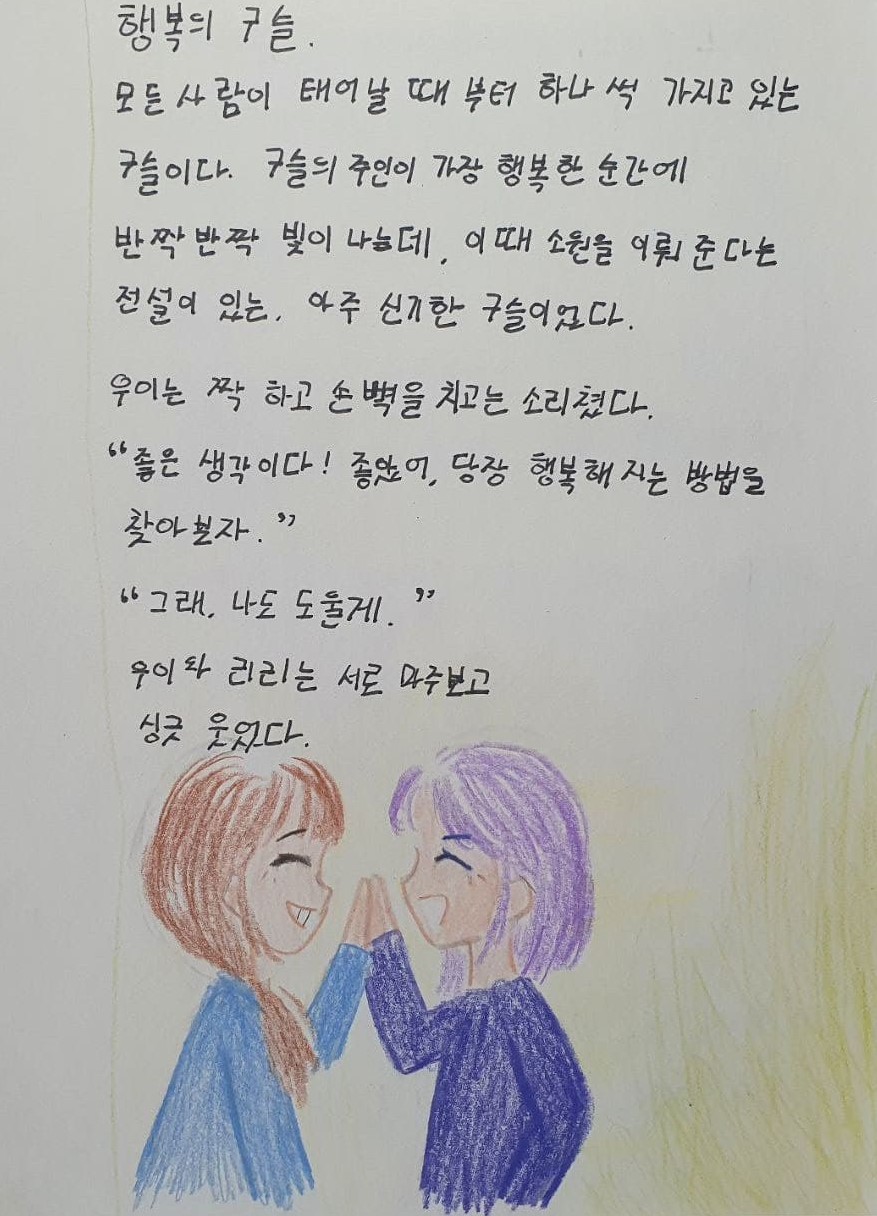 행복의 구슬.
모든 사람이 태어날 때 부터 하나 씩 가지고 있는
구슬이다. 구슬의 주인이 가장 행복한 순간에
반짝반짝 빛이 나는데, 이때 소원을 이뤄 준다는
전설이 있는, 아주 신기한 구슬이었다.
우이는 짝 하고 손뼉을 치고는 소리쳤다.
“좋은 생각이다! 좋았어, 당장 행복해 지는 방법을
찾아보자.”
“그래, 나도 도울게.”
우이와 리리는 서로 마주보고
싱긋 웃었다.